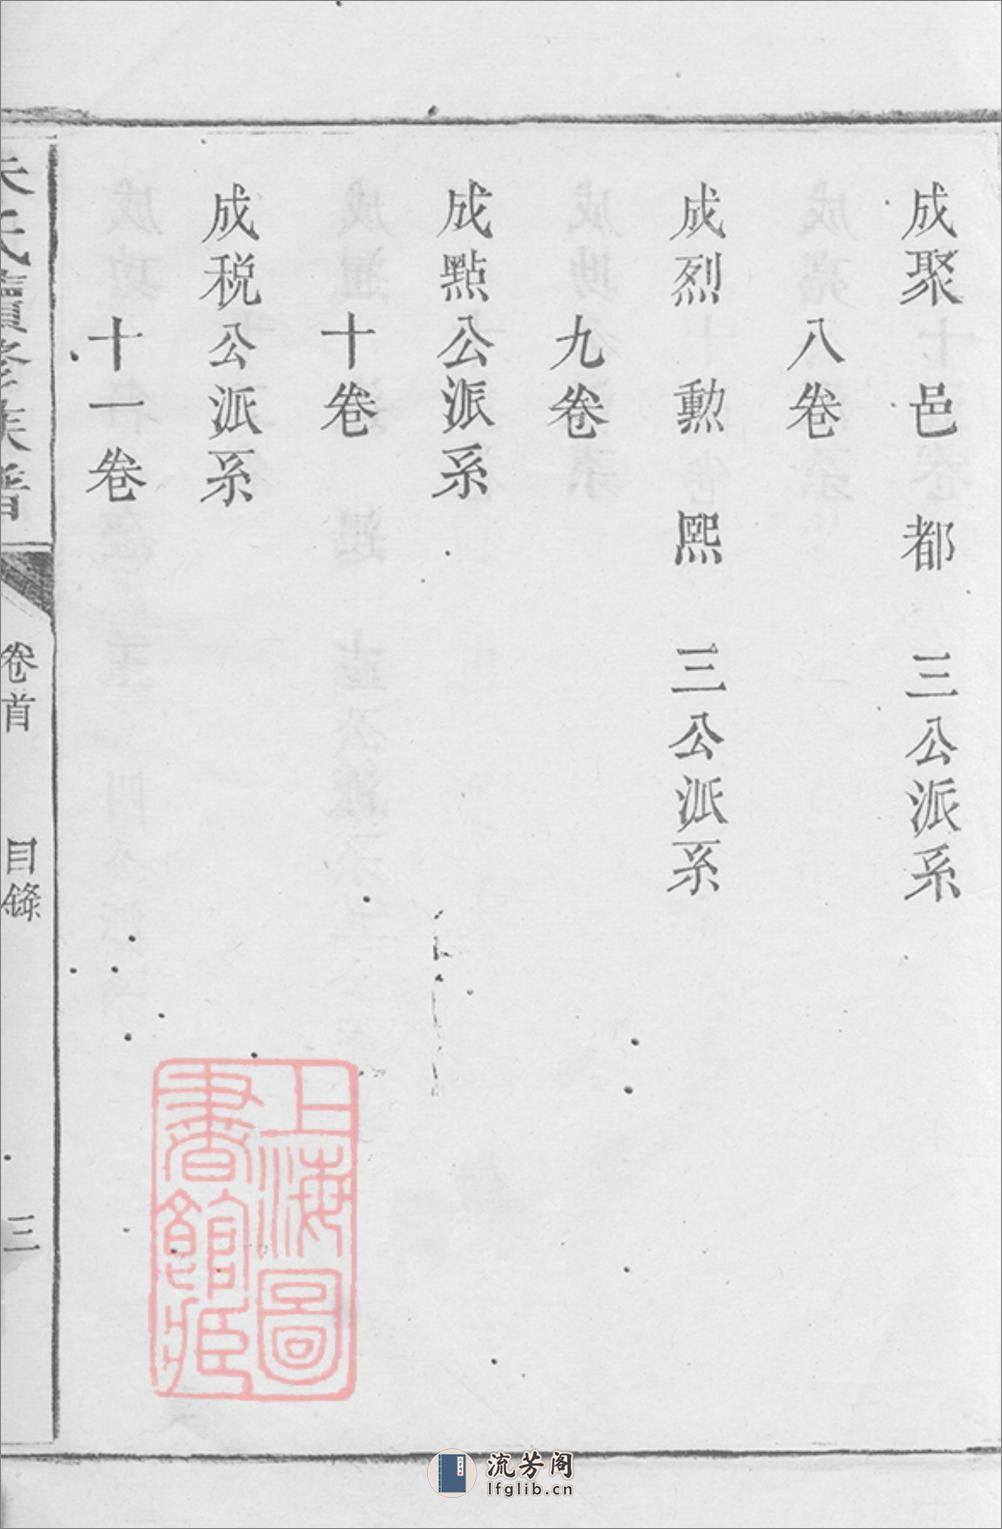 成聚 邑 都 三公派系
八卷
成烈 勲 熙 三公派系
九卷
成點公派系
十卷
成税公派系
十一卷
氏續修族譜
卷首 目錄 三
上海圖書館藏
流芳阁
lfglib.cn